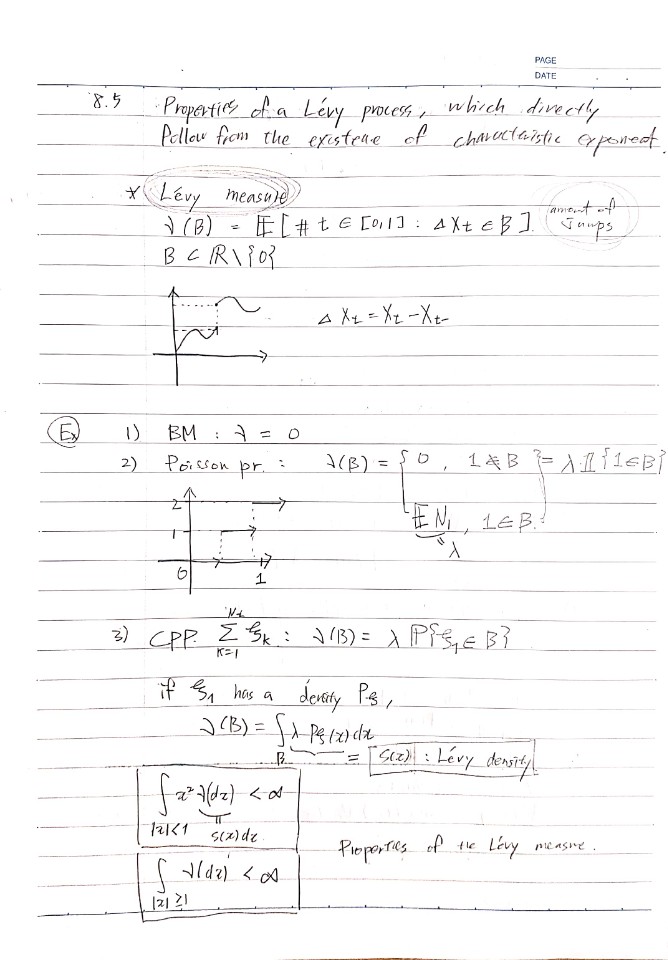 PAGE
DATE
8.5 Properties of a Lévy process, which directly
follow from the existene of characteristic exponent.
* Lévy measure
ν(B) = 𝔼[# t ∈ [0,1] : ΔXt ∈ B]. amount of Jumps
B ⊂ ℝ\{0}
Δ Xt = Xt - Xt-
Ex 1) BM : ν = 0
2) Poisson pr. : ν(B) = { 0 , 1 ∉ B } = λ 𝟙{1∈B}
𝔼 N1 , 1 ∈ B.
" λ
2
1
0 1
3) CPP. Σ_{k=1}^{Nt} ξk : ν(B) = λ ℙ{ξ1 ∈ B}
if ξ1 has a density Pξ ,
ν(B) = ∫_B λ Pξ(x) dx
= S(x) : Lévy density
∫_{|x|<1} x² ν(dx) < ∞
" S(x)dx
Properties of the Lévy measure.
∫_{|x|≥1} ν(dx) < ∞